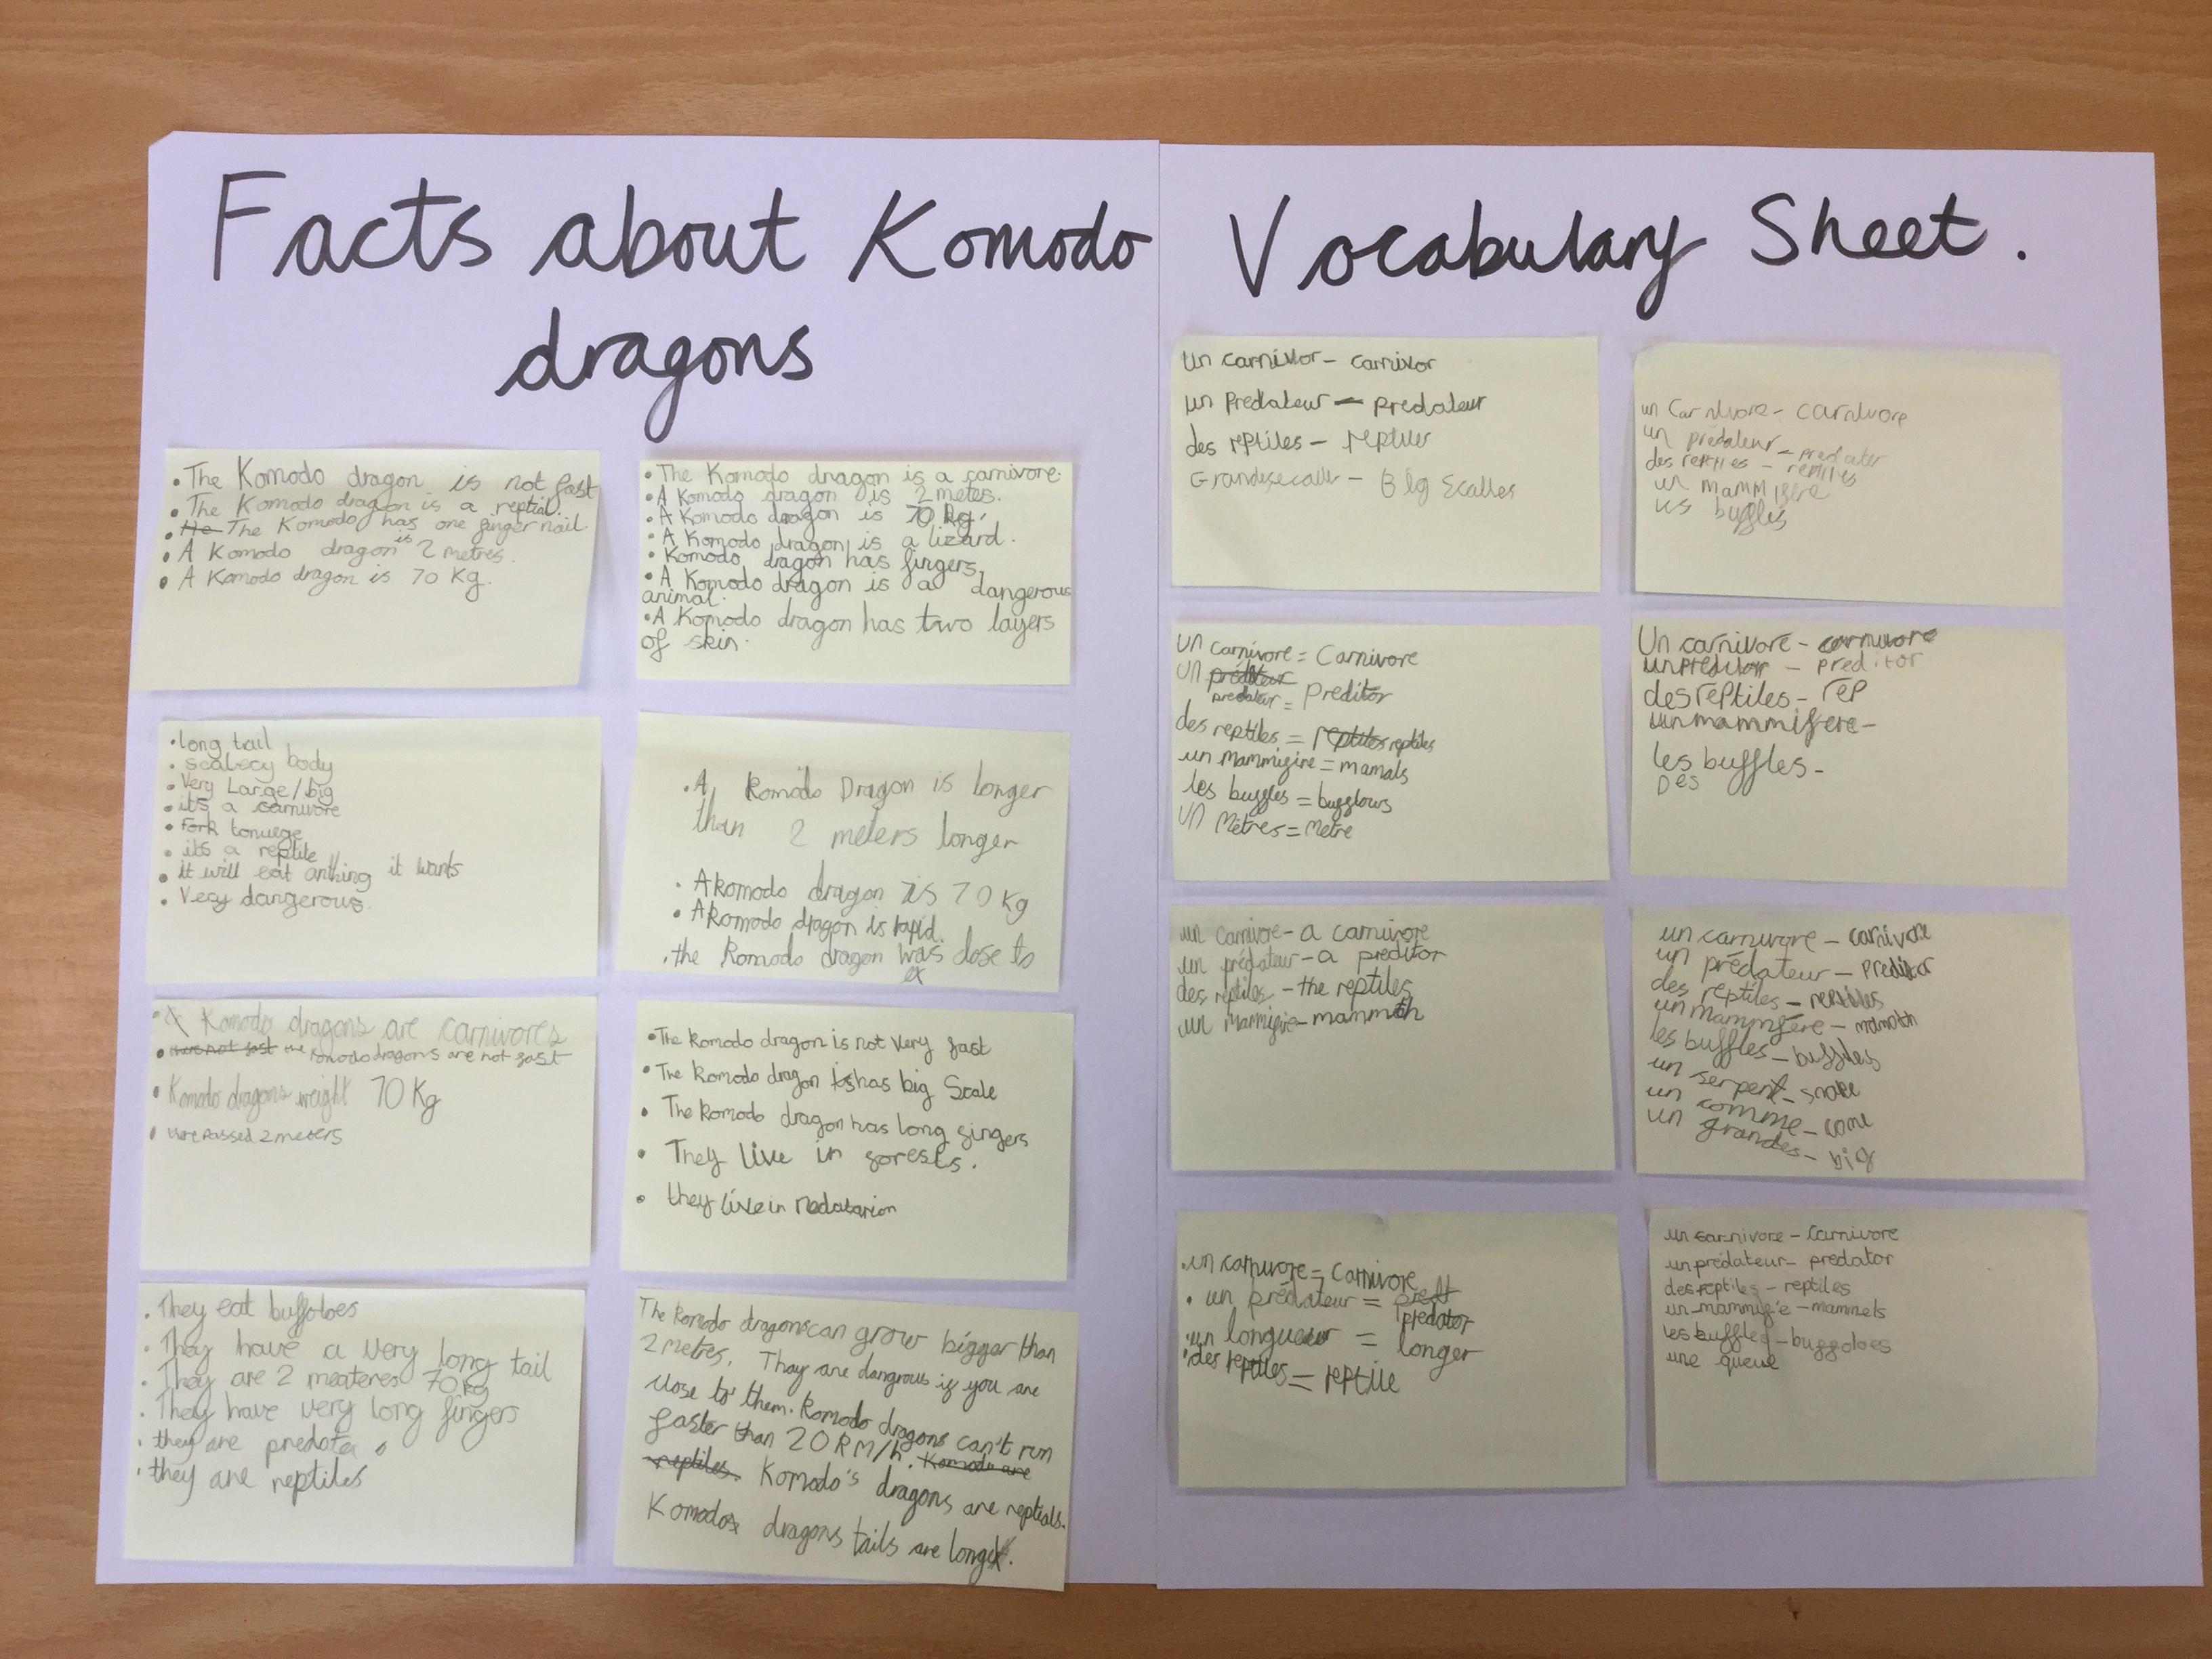 Facts about Komodo
dragons
• The Komodo dragon is not fast
• The Komodo dragon is a reptial.
• He The Komodo has one finger nail.
• A Komodo dragon is 2 metres.
• A Komodo dragon is 70 Kg.
• The Komodo dragon is a carnivore.
• A Komodo dragon is 2 metes.
• A Komodo dragon is 70 kg.
• A Komodo dragon is a lizard.
• Komodo dragon has fingers
• A Komodo dragon is a dangerous
animal.
• A Komodo dragon has two layers
of skin.
• long tail
• scalecy body
• Very Large/big
• it's a carnivore
• Fork tonuege
• it's a reptile
• it will eat anthing it wants
• Very dangerous.
• A Komodo Dragon is longer
than 2 meters longer
• A komodo dragon is 70 Kg
• A Komodo dragon is rapid.
• the Komodo dragon was close to
ex
• Komodo dragons are carnivores
• the Komodo dragons are not fast
• Komodo dragons weight 70 Kg
• passed 2 meters
• The Komodo dragon is not very fast
• The Komodo dragon has big Scale
• The Komodo dragon has long fingers
• They live in forests.
• they live in
• They eat buffoloes
• They have a very long tail
• They are 2 meateres 70 kg
• They have very long fingers
• they are predota
• they are reptiles
The Komodo dragons can grow bigger than
2 metres. Thay are dangrous if you are
close to them. Komodo dragons can't run
faster than 20 KM/h. Komodo are
reptiles. Komodo's dragons are reptials.
Komodos dragons tails are long.
Vocabulary Sheet.
un carnivor – carnivor
un predateur – predateur
des reptiles – reptiles
Grandesecaille – Big Scalles
un Carnivore – carnivore
un prédateur – predater
des reptiles – reptiles
un mammifere
les buffles
un carnivore = Carnivore
un prédateur
predateur = Preditor
des reptiles = reptiles reptiles
un mammifire = mamals
les buffles = bufflows
un Mètres = Metre
Un carnivore – carnivore
un – preditor
des reptiles – rep
un mammifere –
les buffles –
Des
un carnivore – a carnivore
un prédateur – a preditor
des reptiles – the reptiles
un mammifire – mammoth
un carnivore – carnivore
un prédateur – Preditor
des reptiles – reptiles
un mammifere – mamoth
les buffles – buffles
un serpent – snake
un comme – come
un grandes – big
• un carnivore = Carnivore
• un prédateur = predt
predator
• un longueur = longer
• des reptiles = reptile
un carnivore – Carnivore
un prédateur – predator
des reptiles – reptiles
un mammif'e – mammels
les buffles – buffoloes
une queue